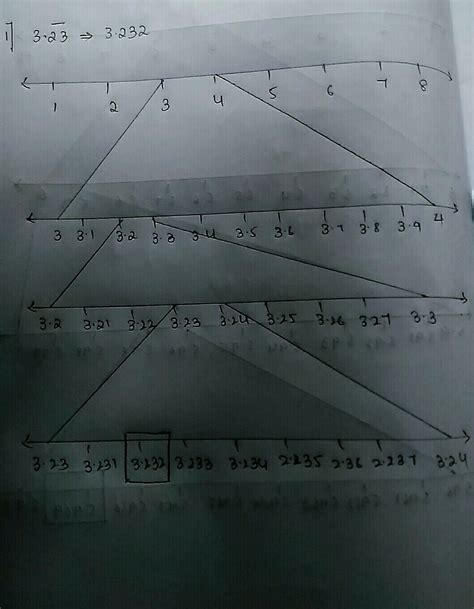 1] 3.2̅3̅ ⇒ 3.232
1 2 3 4 5 6 7 8
3 3.1 3.2 3.3 3.4 3.5 3.6 3.7 3.8 3.9 4
3.2 3.21 3.22 3.23 3.24 3.25 3.26 3.27 3.3
3.23 3.231 3.232 3.233 3.234 2.235 2.36 2.237 3.24